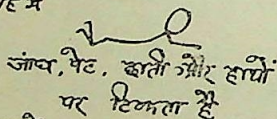 जांघ, पेट, छाती और हाथों
पर टिकता है